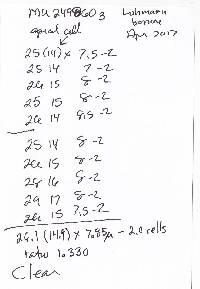 MU 249860 3
apical cell
Lohmann
bovine
Apr 2017
25 (14) x 7.5-2
25 14 7-2
26 15 8-2
25 15 8-2
26 14 8.5-2
25 14 8-2
26 15 8-2
28 16 8-2
29 17 8-2
26 15 7.5-2
26.1 (14.9) x 7.85µ - 2.0 cells
ratio 1.330
Clear